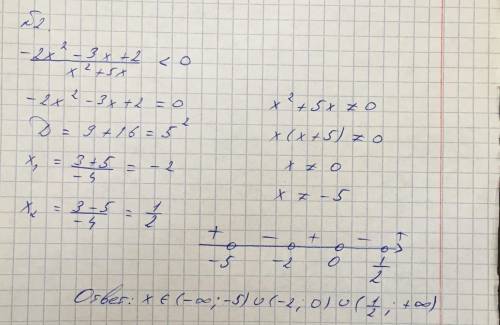 №2.
(-2x² - 3x + 2)/(x² + 5x) < 0
-2x² - 3x + 2 = 0
D = 9 + 16 = 5²
x₁ = (3+5)/(-4) = -2
x₂ = (3-5)/(-4) = 1/2
x² + 5x ≠ 0
x(x+5) ≠ 0
x ≠ 0
x ≠ -5
+ - + - +
-5 -2 0 1/2
Ответ: x ∈ (-∞; -5) ∪ (-2; 0) ∪ (1/2; +∞)